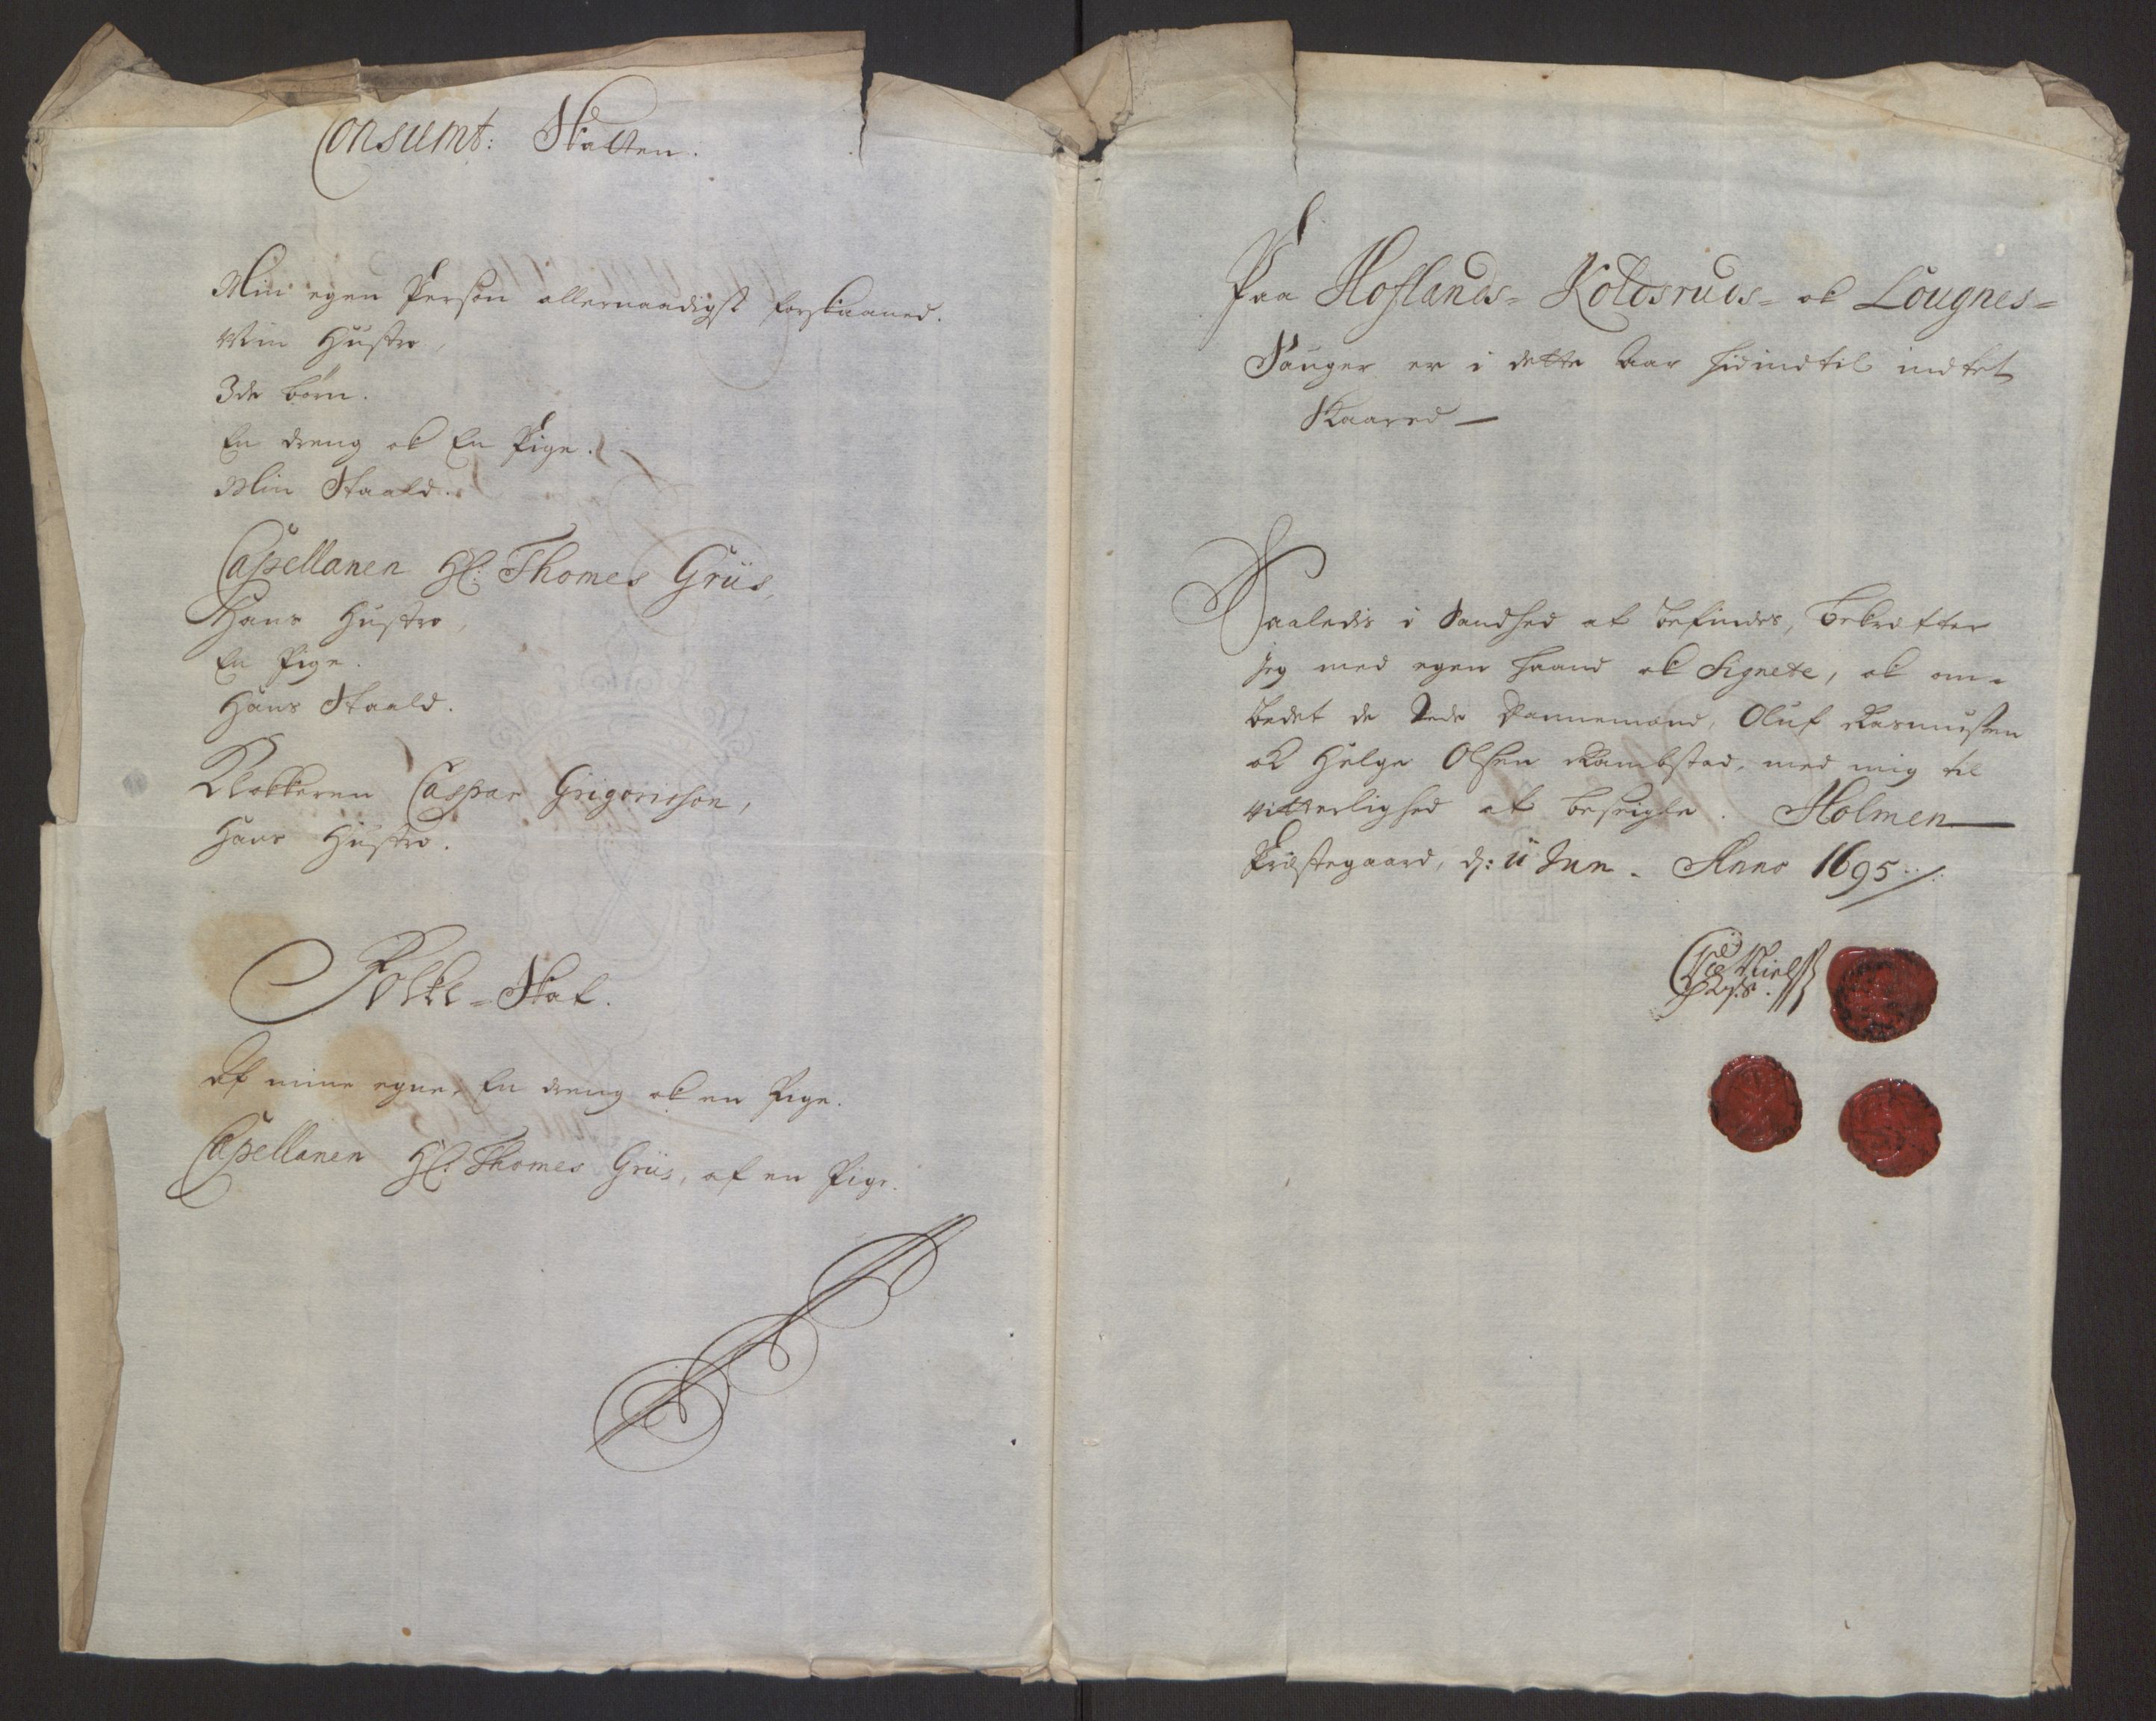 Consumt: Skatten.
Min egen Person allernaadigst forskaaned.
Min Hustro,
3de børn.
En dreng ok En Pige.
Min Staald.
Capellanen Hr. Thomes Grüs,
Hans Hustro,
En Pige.
Hans Staald.
Klokkeren Caspar Grigorisson,
Hans Hustro.
Folke-Skat.
Af mine egne, En dreng ok en Pige.
Capellanen Hr. Thomes Grüs, af en Pige.
Paa Hoflands- Koldsruds- ok Lougnes-
Sauger er i dette Aar hidindtil indtet
Skaared —
Saaledis i Sandhed at befindes, bekræfter
jeg med egen Haand ok Signete, ok om-
bedet de Dannemænd, Oluf Rasmussen
ok Helge Olsen Rambstad, med mig til
vitterlighed at beseigle. Holmen
Præstegaard, d: 11 Jun. Anno 1695